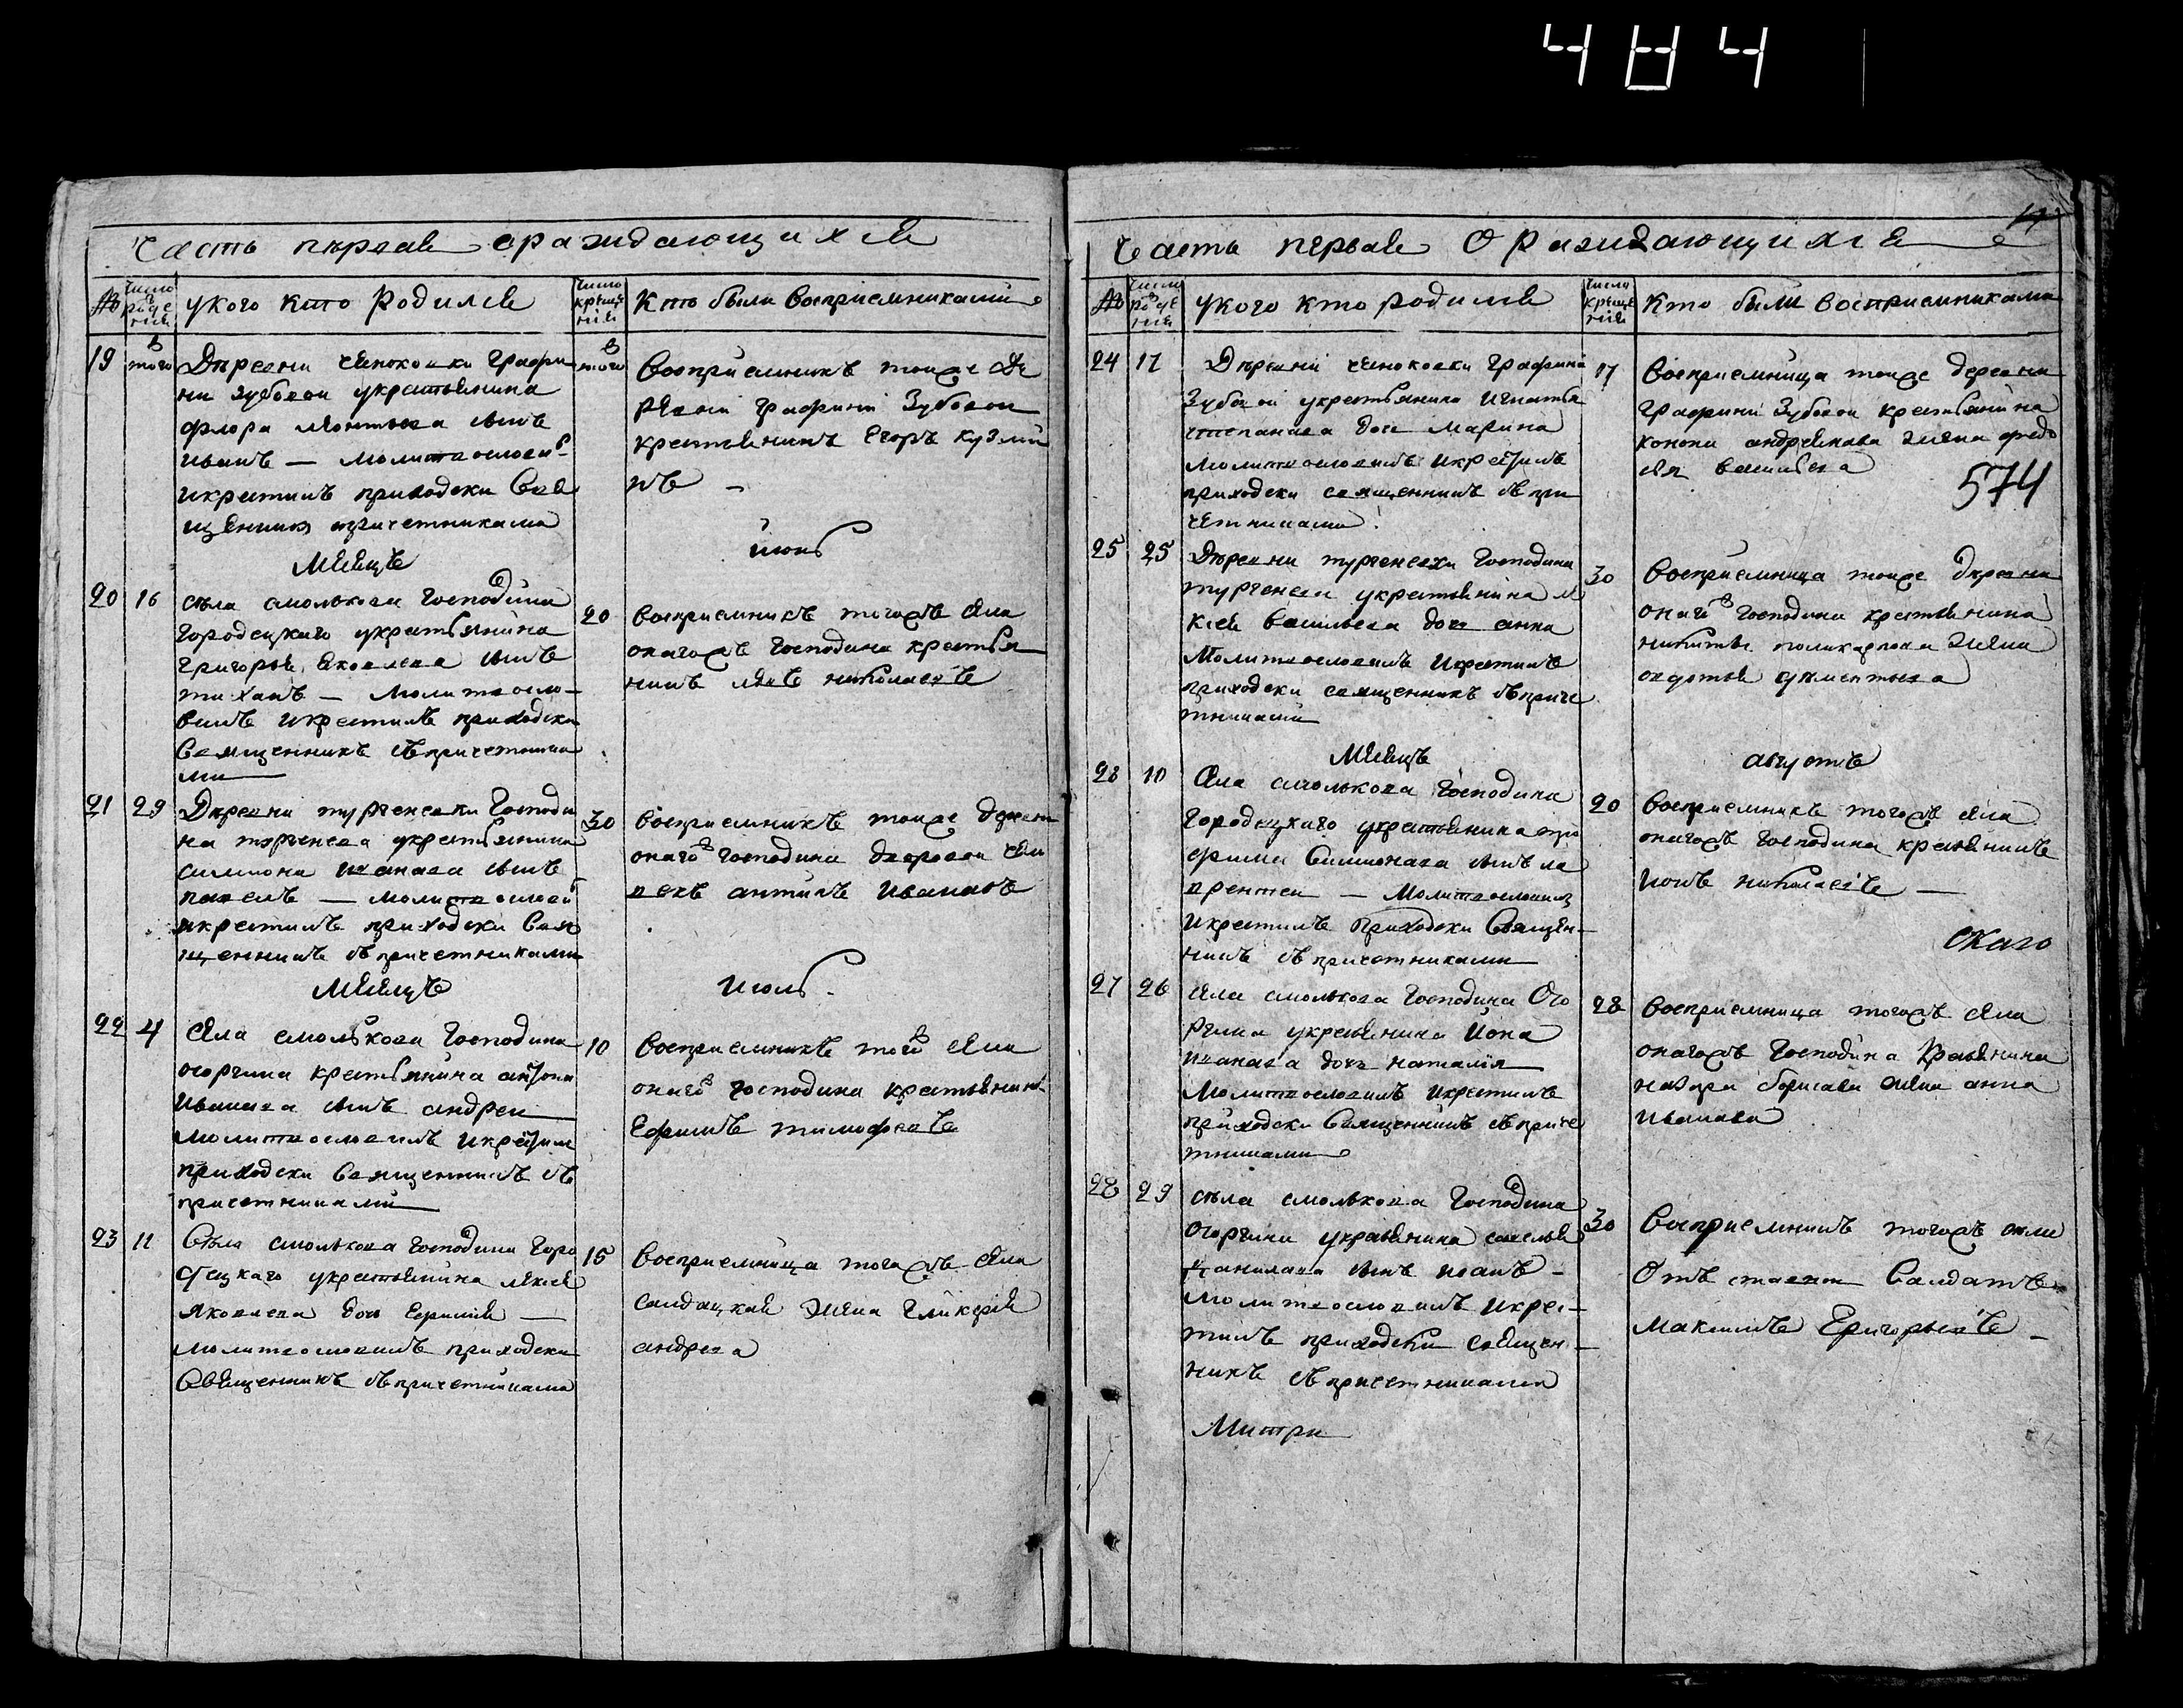 484
Часть первая о раждающихся
№ число рожде ния
у кого кто родился
число креще ния
кто были восприемниками
19 того
Деревни графи
ни Зубовои у крестьянина
флора леонтьева сынъ
иванъ — молитвословил
и крестилъ приходски Свя
щенникъ с причетниками
того
восприемникъ тоиже де
ревни графини Зубовои
крестьянинъ егоръ кузми
нъ —
Месяцъ
июнь
20 16
села смолькова Господина
городецкаго у крестьянина
григорья яковлева сынъ
тиханъ — молитвосло-
вилъ и крестилъ приходски
Священникъ съ причетника
ми
20
восприемникъ тогожъ села
онагожъ господина крестья
нинъ николаевъ
21 29
Деревни тургеневки Господи
на тургенева у крестьянина
симиона иванава сынъ
павелъ — молитвословил
и крестилъ приходски Свя
щенникъ съ причетниками
30
восприемникъ тоиже деревни
онагожъ господина дворовои чело
векъ антипъ Ивановъ
Месяцъ
июль
22 4
села смолькова господина
огоргина крестьянина антона
иванава сынъ андреи
молитвословилъ и крестил
приходски Священникъ съ
причетниками
10
восприемникъ тогожъ села
онагожъ господина крестьянинъ
Ефимъ тимофеевъ
23 11
Села смолькова господина горо
децкаго у крестьянина
яковлева дочь —
молитвословилъ приходски
Священникъ съ причетниками
15
восприемница тогожъ села
салдацкая жена гликерия
андреева
Часть первая О раждающихся
17
№ число рожде ния
у кого кто родился
число креще ния
кто были восприемниками
24 17
Деревни графини
Зубовои у крестьянина игнатья
степанава дочь Марина
молитвословилъ и крестилъ
приходски священникъ съ при
четниками
17
восприемница тоиже деревни
графини Зубовои крестьянина
андреянава жена федо
сья васильева
574
25 25
Деревни тургеневки господина
тургенева у крестьянина
васильева дочь анна
Молитвословилъ и крестилъ
приходски священникъ съ приче
тниками
30
восприемница тоиже деревни
онагожъ господина крестьянина
никиты поликарпова жена
авдотья
Месяцъ
августъ
26 10
села смолькова господина
городецкаго у крестьянина тро
фима Симионава сынъ ла
врентеи — Молитвословилъ
и крестилъ приходски Священ-
никъ съ причетниками
20
восприемникъ тогожъ села
онагожъ господина крестьянинъ
николаевъ —
скаго
27 26
села смолькова господина Ого
ргина у крестьянина Иона
иванава дочь наталия
Молитвословилъ и крестилъ
приходски Священникъ съ приче
тниками
28
восприемница тогожъ села
онагожъ господина крестьянина
назара борисава жена анна
иванава
28 29
села смолькова господина
огоргина у крестьянина савелья
данилава сынъ иоанъ —
молитвословилъ и крес-
тилъ приходски священ-
никъ съ причетниками
30
восприемникъ тогожъ села
Отъ ставнои Салдатъ
Максимъ Григорьевъ —
Митри